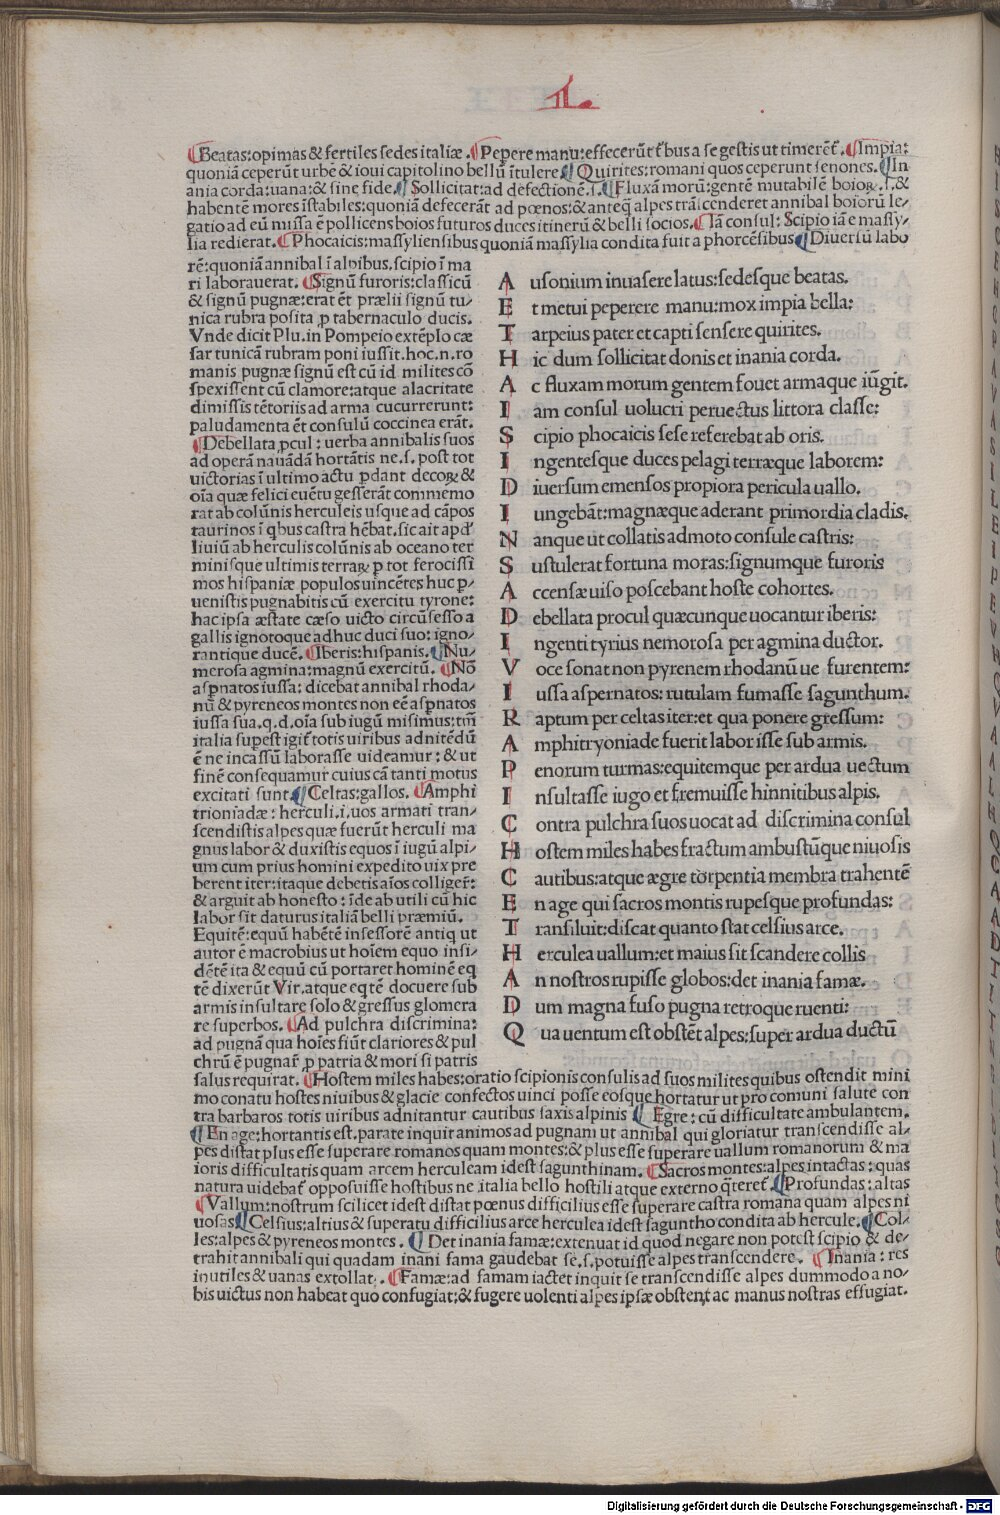 L.
¶Beatas:opimas & fertiles sedes italiæ.¶Pepere manu:effecerūt t̄bus a se gestis ut timerēt̄.¶Impia:
quoniā ceperūt urbē & ioui capitolino bellū ītulere¶Quirites:romani quos ceperunt senones.¶In
ania corda:uana:& sine fide.¶Sollicitat:ad defectionē.s.¶Fluxā morū:gentē mutabilē boioꝝ.s.&
habentē mores īstabiles:quoniā defecerāt ad pœnos:& anteq̄ alpes trāscenderet annibal boiorū le/
gatio ad eū missa ē pollicens boios futuros duces itinerū & belli socios.¶Iā consul: Scipio iā e massy/
lia redierat.¶Phocaicis:massyliensibus quoniā massylia condita fuit a phorcēsibus¶Diuersū labo
rē:quoniā annibal ī alpibus.scipio ī ma
ri laborauerat.¶Signū furoris:classicū
& signū pugnæ:erat ēt prælii signū tu/
nica rubra posita ꝓ tabernaculo ducis.
Vnde dicit Plu.in Pompeio extēplo cæ
sar tunicā rubram poni iussit.hoc.n.ro
manis pugnæ signū est cū id milites cō
spexissent cū clamore:atque alacritate
dimissis tētoriis ad arma cucurrerunt:
paludamenta ēt consulū coccinea erāt.
¶Debellata ꝓcul: uerba annibalis suos
ad operā nauādā hortātis ne.s.post tot
uictorias ī ultimo actu ꝑdant decoꝝ &
oīa quæ felici euētu gesserāt commemo
rat ab colūnis herculeis usque ad cāpos
taurinos ī q̇bus castra hēbat.sic ait apd̄
liuiū ab herculis colūnis ab oceano ter
minisque ultimis terraꝝ ꝑ tot ferocissi
mos hispaniæ populos uincētes huc ꝑ/
uenistis pugnabitis cū exercitu tyrone:
hac ipsa æstate cæso uicto circūsesso a
gallis ignotoque adhuc duci suo: igno/
rantique ducē.¶Iberis:hispanis.¶Nu/
merosa agmina:magnū exercitū.¶Nō
aspnatos iussa: dicebat annibal rhoda/
nū & pyreneos montes non eē aspnatos
iussa sua.q.d.oīa sub iugū misimus:tm̄
italia supest igit̄ totis uiribus adnitēdū
ē ne incassū laborasse uideamur:& ut
finē consequamur cuius cā tanti motus
excitati sunt.¶Celtas:gallos.¶Amphi
trioniadæ: herculi.i.uos armati tran/
scendistis alpes quæ fuerūt herculi ma
gnus labor & duxistis equos ī iugū alpi/
um cum prius homini expedito uix pre
berent iter:itaque debetis aīos colliger̄:
& arguit ab honesto: īde ab utili cū hic
labor sit daturus italiā belli præmiū.
Equitē:equū habētē insessorē antiq ut
autor ē macrobius ut hoīem equo insi/
dētē ita & equū cū portaret hominē eq
tē dixerūt Vir.atque eq tē docuere sub
armis insultare solo & gressus glomera
re superbos.¶Ad pulchra discrimina:
ad pugnā qua hoīes fiūt clariores & pul
chrū ē pugnar̄ ꝓ patria & mori si patris
A usonium inuasere latus:sedesque beatas.
E t metui peperere manu:mox impia bella:
T arpeius pater et capti sensere quirites.
H ic dum sollicitat donis et inania corda.
A c fluxam morum gentem fouet armaque iūgit.
I am consul uolucri peruectus littora classe:
S cipio phocaicis sese referebat ab oris.
I ngentesque duces pelagi terræque laborem:
D iuersum emensos propiora pericula uallo.
I ungebāt:magnæque aderant primordia cladis.
N anque ut collatis admoto consule castris:
S ustulerat fortuna moras:signumque furoris
A ccensæ uiso poscebant hoste cohortes.
D ebellata procul quæcunque uocantur iberis:
I ngenti tyrius nemorosa per agmina ductor.
V oce sonat non pyrenem rhodanū ue furentem:
I ussa aspernatos: rutulam fumasse sagunthum.
R aptum per celtas iter:et qua ponere gressum:
A mphitryoniade fuerit labor isse sub armis.
P enorum turmas:equitemque per ardua uectum
I nsultasse iugo et fremuisse hinnitibus alpis.
C ontra pulchra suos uocat ad discrimina consul
H ostem miles habes fractum ambustūque niuosis
C autibus:atque ægre torpentia membra trahentē
E n age qui sacros montis rupesque profundas:
T ransiluit:discat quanto stat celsius arce.
H erculea uallum:et maius sit scandere collis
A n nostros rupisse globos:det inania famæ.
D um magna fuso pugna retroque ruenti:
Q ua uentum est obstēt alpes:super ardua ductū
salus requirat.¶Hostem miles habes:oratio scipionis consulis ad suos milites quibus ostendit mini
mo conatu hostes niuibus & glacie confectos uinci posse eosque hortatur ut pro comuni salute con
tra barbaros totis uiribus adnitantur cautibus saxis alpinis¶Egre: cū difficultate ambulantem.
¶En age:hortantis est.parate inquit animos ad pugnam ut annibal qui gloriatur transcendisse al/
pes distat plus esse superare romanos quam montes:& plus esse superare uallum romanorum & ma
ioris difficultatis quam arcem herculeam idest sagunthinam.¶Sacros montes:alpes intactas:quas
natura uidebat̄ opposuisse hostibus ne italia bello hostili atque externo q̄teret̄.¶Profundas:altas
¶Vallum:nostrum scilicet idest distat pœnus difficilius esse superare castra romana quam alpes ni
uosas¶Celsius:altius & superatu difficilius arce herculea idest saguntho condita ab hercule.¶Col/
les:alpes & pyreneos montes.¶Det inania famæ:extenuat id quod negare non potest scipio & de/
trahit annibali qui quadam inani fama gaudebat se.s.potuisse alpes transcendere.¶Inania:res
inutiles & uanas extollat.¶Famæ:ad famam iactet inquit se transcendisse alpes dummodo a no/
bis uictus non habeat quo confugiat:& fugere uolenti alpes ipsæ obstent ac manus nostras effugiat.
Digitalisierung gefördert durch die Deutsche Forschungsgemeinschaft - DFG